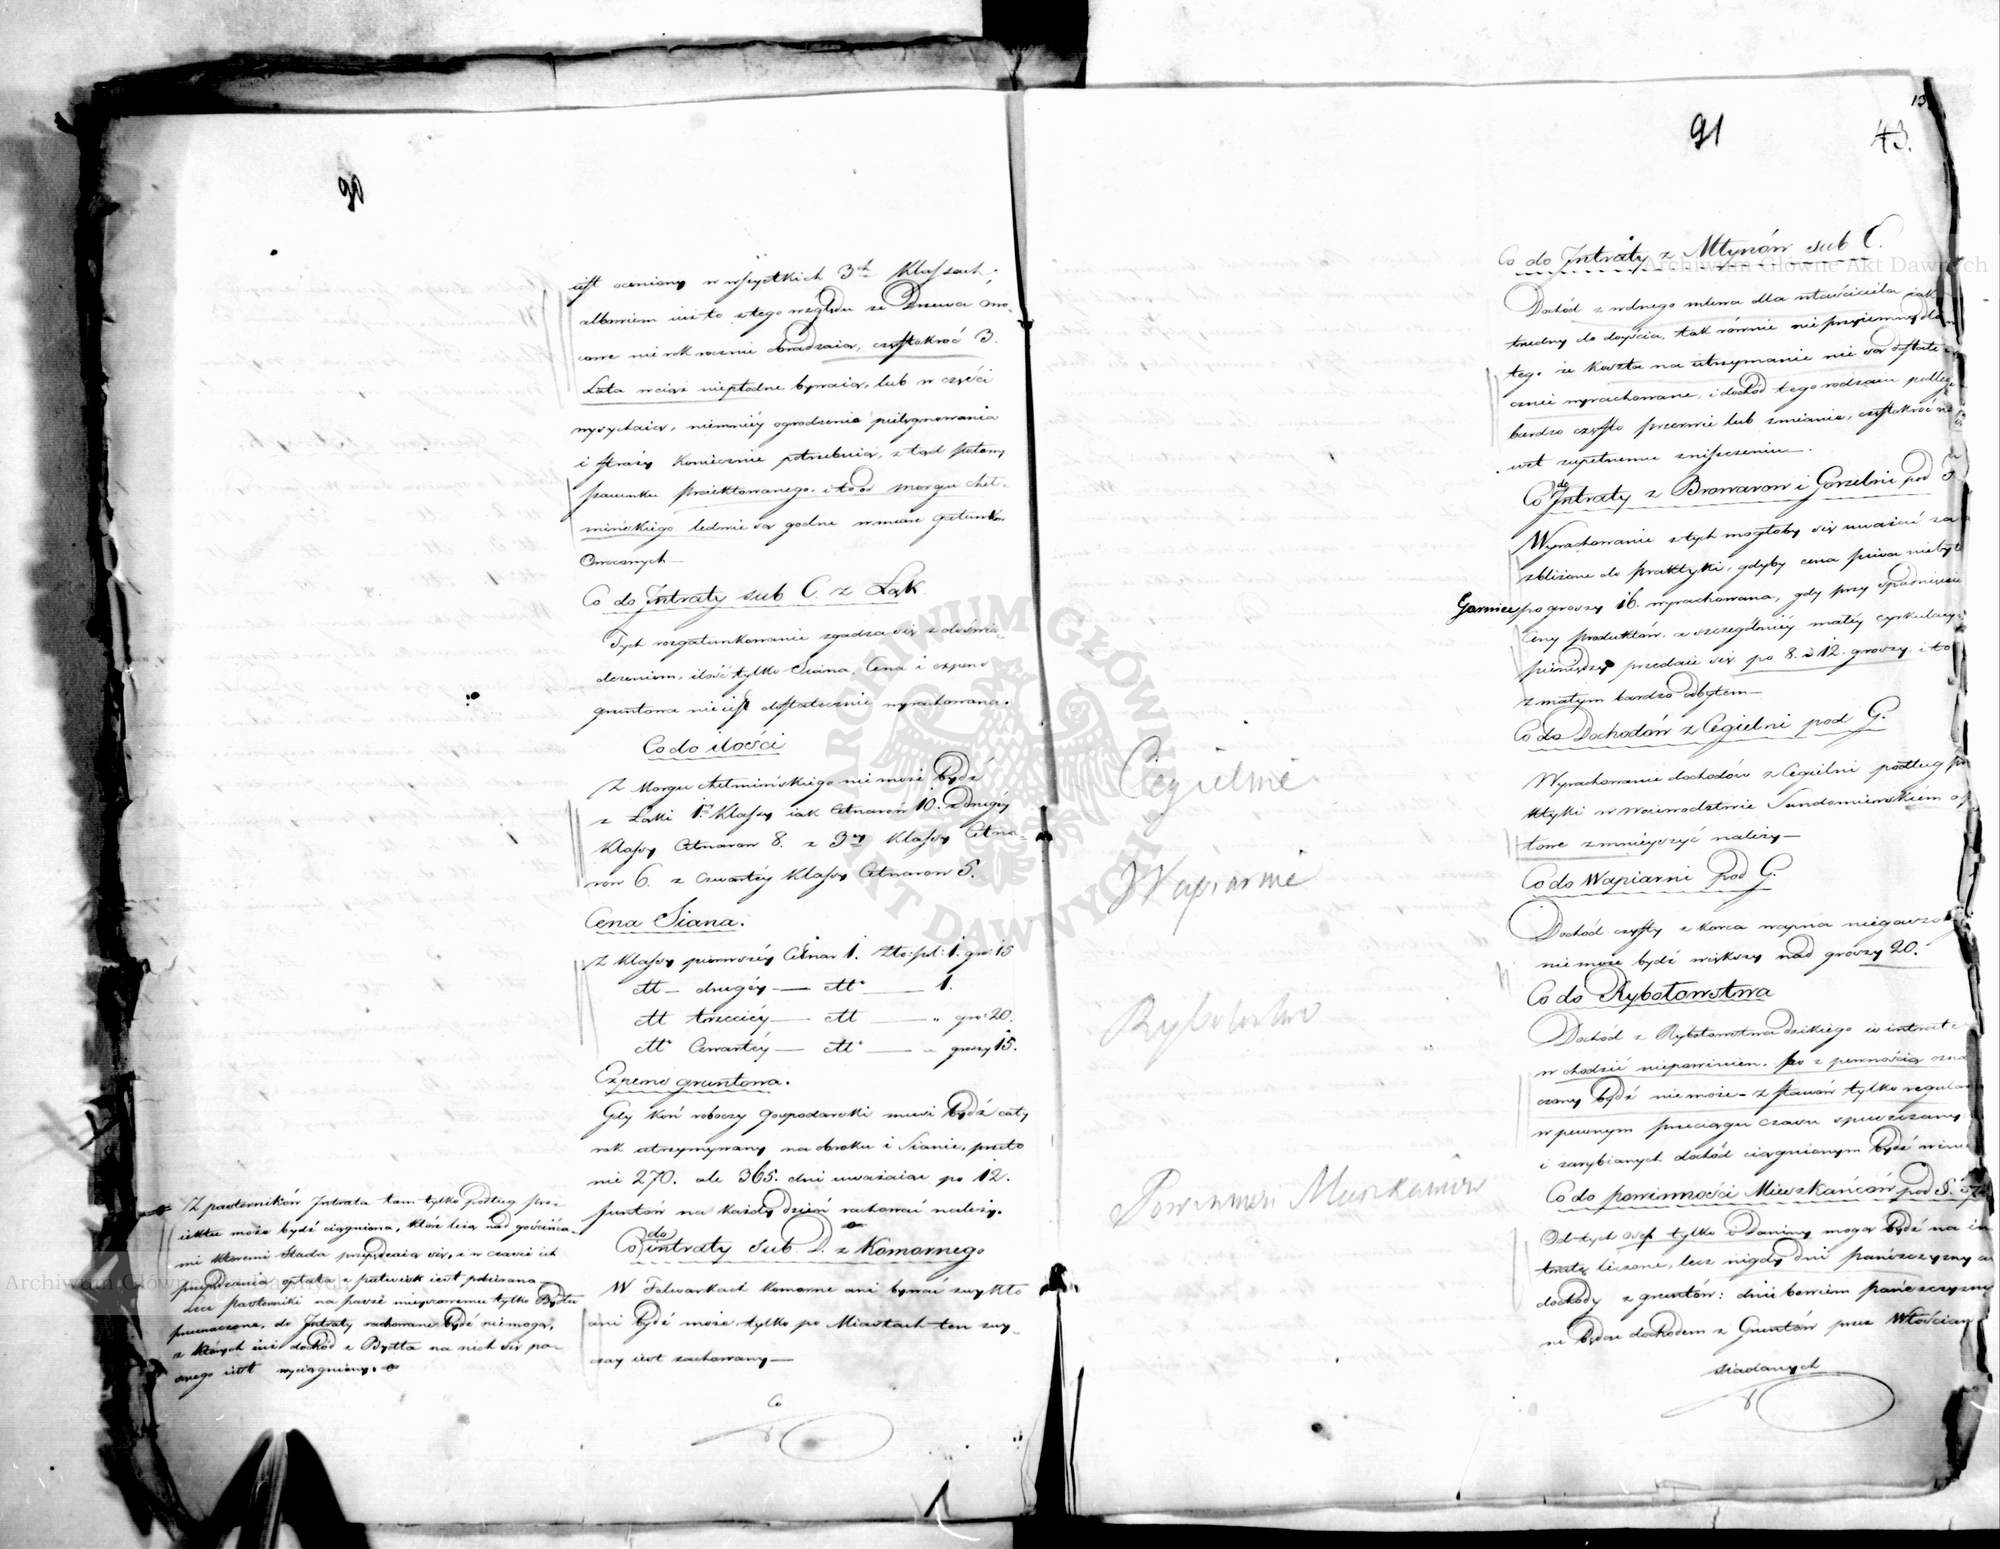 90
iest oceniony w wszystkich 3ch Klassach.
albowiem iuż to z tego względu że Drzewa owo-
cowe nie rok rocznie obradzaią, częstokroć 3.
Lata wciąż niepłodne bywaią, lub w części
wysychaią, niemniéy ogrodzenia pielęgnowania
i straży koniecznie potrzebuią, z tąd połowy
szacunku proiektowanego i to od morgu cheł-
mińskiego ledwie są godne w miarę gatunków
Owocowych—
Co do Intraty sub C. z Łąk.
Tych rozgatunkowanie zgadza się z doświad-
czeniem, ilość tylko Siana, Cena i expens
gruntowa nie iest dostatecznie wyrachowana.
Co do ilości
Z Morgu chełmińskiego nie może bydź
z Łąki 1ey Klassy iak Cetnarów 10. z drugiéy
Klassy Cetnarow 8. z 3ey Klassy Cetna-
row 6. z Czwartéy Klassy Cetnarow 5.
Cena Siana.
Z Klassy pierwszéy Cetnar 1. Zło: pol: 1. gro: 15
dtt — drugiéy — dtto — 1.
dtt trzeciéy — dtt — " gro: 20.
dtto Czwartéy — dtt — " groszy 15.
Expens gruntowa.
Gdy koń roboczy Gospodarski musi bydź cały
rok utrzymywany na obroku i Sianie, przeto
nie 270. ale 365. dni uważaiąc po 12.
funtów na każdy dzień rachować należy.
Co do intraty sub. D. z Komornego
W Folwarkach Komorne ani bywać zwykło
ani bydź może, tylko po Miastach ten zwy-
czay iest zachowany—
Co
Z pastwisków Intrata tam tylko podług pro-
iektu może bydź ciągniona, które leżą nad gościńca-
mi któremi Stada przepędzaią się, i w czasie ich
przepędzania opłata z pastwisk iest pobierana—
Lecz pastwiski na paszę mieyscowemu tylko Bydłu
przeznaczone, do Intraty rachowane bydź niemogą,
z których iuż dochód z Bydła na nich się pa-
sącego iest wyciągniony.
91
43.
13
Co do Intraty z Młynów sub E.
Dochód z wolnego mlewa dla właściciela iak
trudny do doyścia, tak równie nieprzyiemny dla
tego, że koszta na utrzymanie nie są dostate-
cznie wyrachowane, i dochód tego rodzaiu podlega
bardzo często przerwie lub zmianie, częstokroć na-
wet zupełnemu zniszczeniu—
Co do Intraty z Browarow i Gorzelni pod F
Wyrachowanie z tych mogłoby się uważać za
zbliżone do praktyki, gdyby cena piwa niebyła
Garniec po groszy 16. wyrachowana, gdy przy spadnieniu
Ceny produktów a szczególniéy małéy cyrkulacyi
pieniędzy przedaie się po 8. à 12. groszy i to
z małym bardzo odbytem—
Co do Dochodów z Cegielni pod G.
Wyrachowanie dochodów z Cegielni podług pra
ktyki w Woiewodztwie Sandomierskiem o
towe zmnieyszyć należy—
Co do Wapiarni pod G.
Dochód czysty z korca wapna niegaszo
nie może bydź większy nad groszy 20.
Co do Rybołowstwa
Dochód z Rybołowstwa dzikiego w intratę
wchodzić niepowinien, bo z pewnością ozna
czony bydź nie może— z stawów tylko regular
w pewnym przeciągu czasu spuszczanych
i zarybianych dochód ciągnionym bydź winien
Co do powinności Mieszkańców pod §. 57
Od tych osób tylko Daniny mogą bydź na in
tratę liczone, lecz nigdy dni pańszczyzny a
dochody z gruntów: dnie bowiem pańszczyzny
ne będą dochodem z Gruntów przez Włościan
siadanych
Cegielnie
Wapiarnie
Rybołostwo
Powinnosci Mieszkańców
Archiwum Główne Akt Dawnych
Archiwum Główne Akt Dawnych
ARCHIWUM GŁÓWNE AKT DAWNYCH